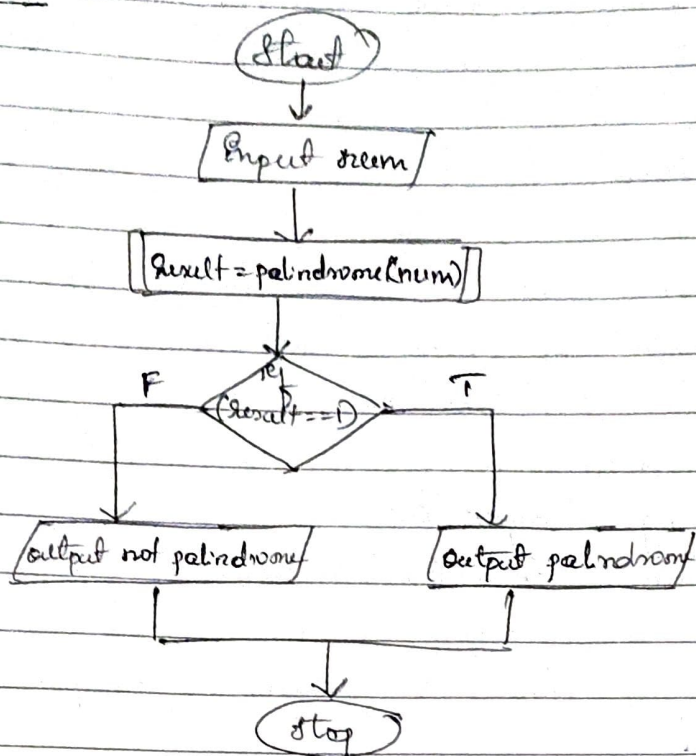 Start
Input num
Result = palindrome(num)
if
F
(result==1)
T
output not palindrome
output palindrome
stop